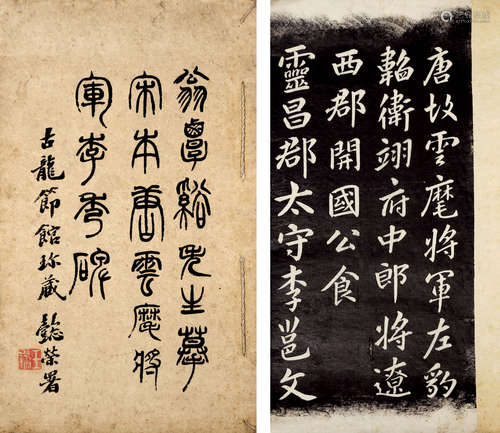 翁覃谿先生摹
宋本唐雲麾將
軍李秀碑
古龍節館珍藏 懿榮署
唐故雲麾將軍左豹
韜衛翊府中郎將遼
西郡開國公食
靈昌郡太守李邕文